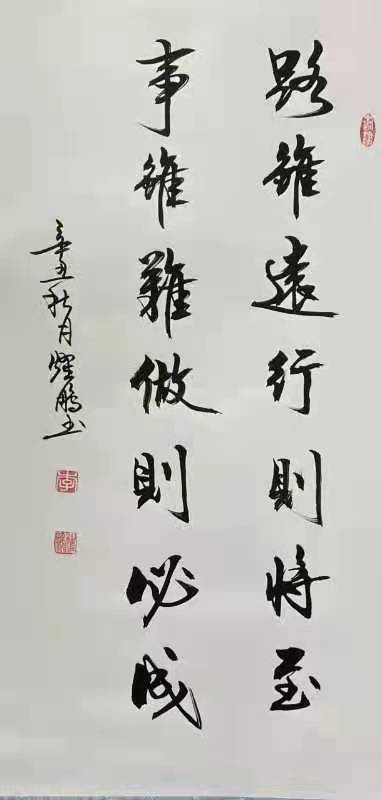 路雖遠行則將至
事雖難做則必成
辛丑秋月耀鵬书